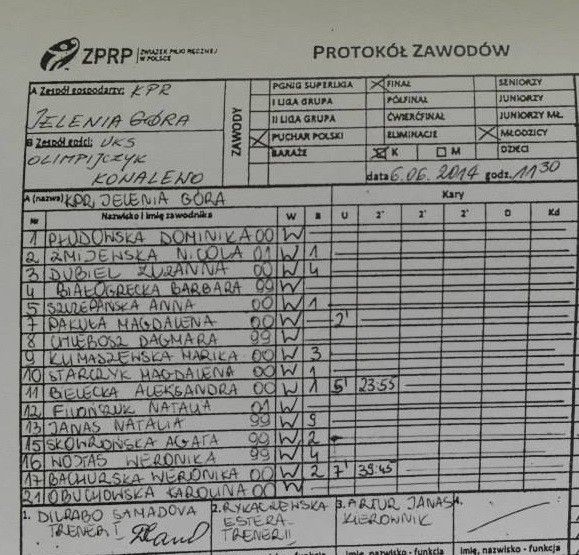 ZPRP ZWIĄZEK PIŁKI RĘCZNEJ
W POLSCE
PROTOKÓŁ ZAWODÓW
A Zespół gospodarzy: KPR
JELENIA GÓRA
B Zespół gości: UKS
OLIMPIJCZYK
KONALENO
ZAWODY
PGNIG SUPERLIGA FINAŁ SENIORZY
I LIGA GRUPA PÓŁFINAŁ JUNIORZY
II LIGA GRUPA ĆWIERĆFINAŁ JUNIORZY MŁ.
PUCHAR POLSKI ELIMINACJE MŁODZICY
BARAŻE K M DZIECI
data 6.06.2014 godz. 11 30
A (nazwa) KPR JELENIA GÓRA Kary
Nr Nazwisko i imię zawodnika W B U 2' 2' 2' D Kd
1 PŁUDOWSKA DOMINIKA 00 W
2 ŻMIJEWSKA NICOLA 01 W 1
3 DUBIEL ZUZANNA 00 W 4
4 BIAŁOGRECKA BARBARA 99 W
5 SZCZEPAŃSKA ANNA 00 W 1
7 PAKUŁA MAGDALENA 00 W 2'
8 CHLEBOSZ DAGMARA 99 W
9 KUMASZEWSKA MARIKA 00 W 3
10 STARCZYK MAGDALENA 00 W 1
11 BIELECKA ALEKSANDRA 00 W 1 5' 23:55
12 NATALIA 01 W
13 JANAS NATALIA 99 W 9
15 SKOWROŃSKA AGATA 99 W 2
16 WOJTAS WERONIKA 99 W 4
17 BACHURSKA WERONIKA 00 W 2 7' 39:45
21 OBUCHOWSKA KAROLINA 00 W
1. DILRABO SAMADOVA
TRENER I
2. RYKACZEWSKA
ESTERA-
TRENER II
3. ARTUR JANAS
KIEROWNIK
4.
Imię, nazwisko - funkcja Imię, nazwisko - funkcja